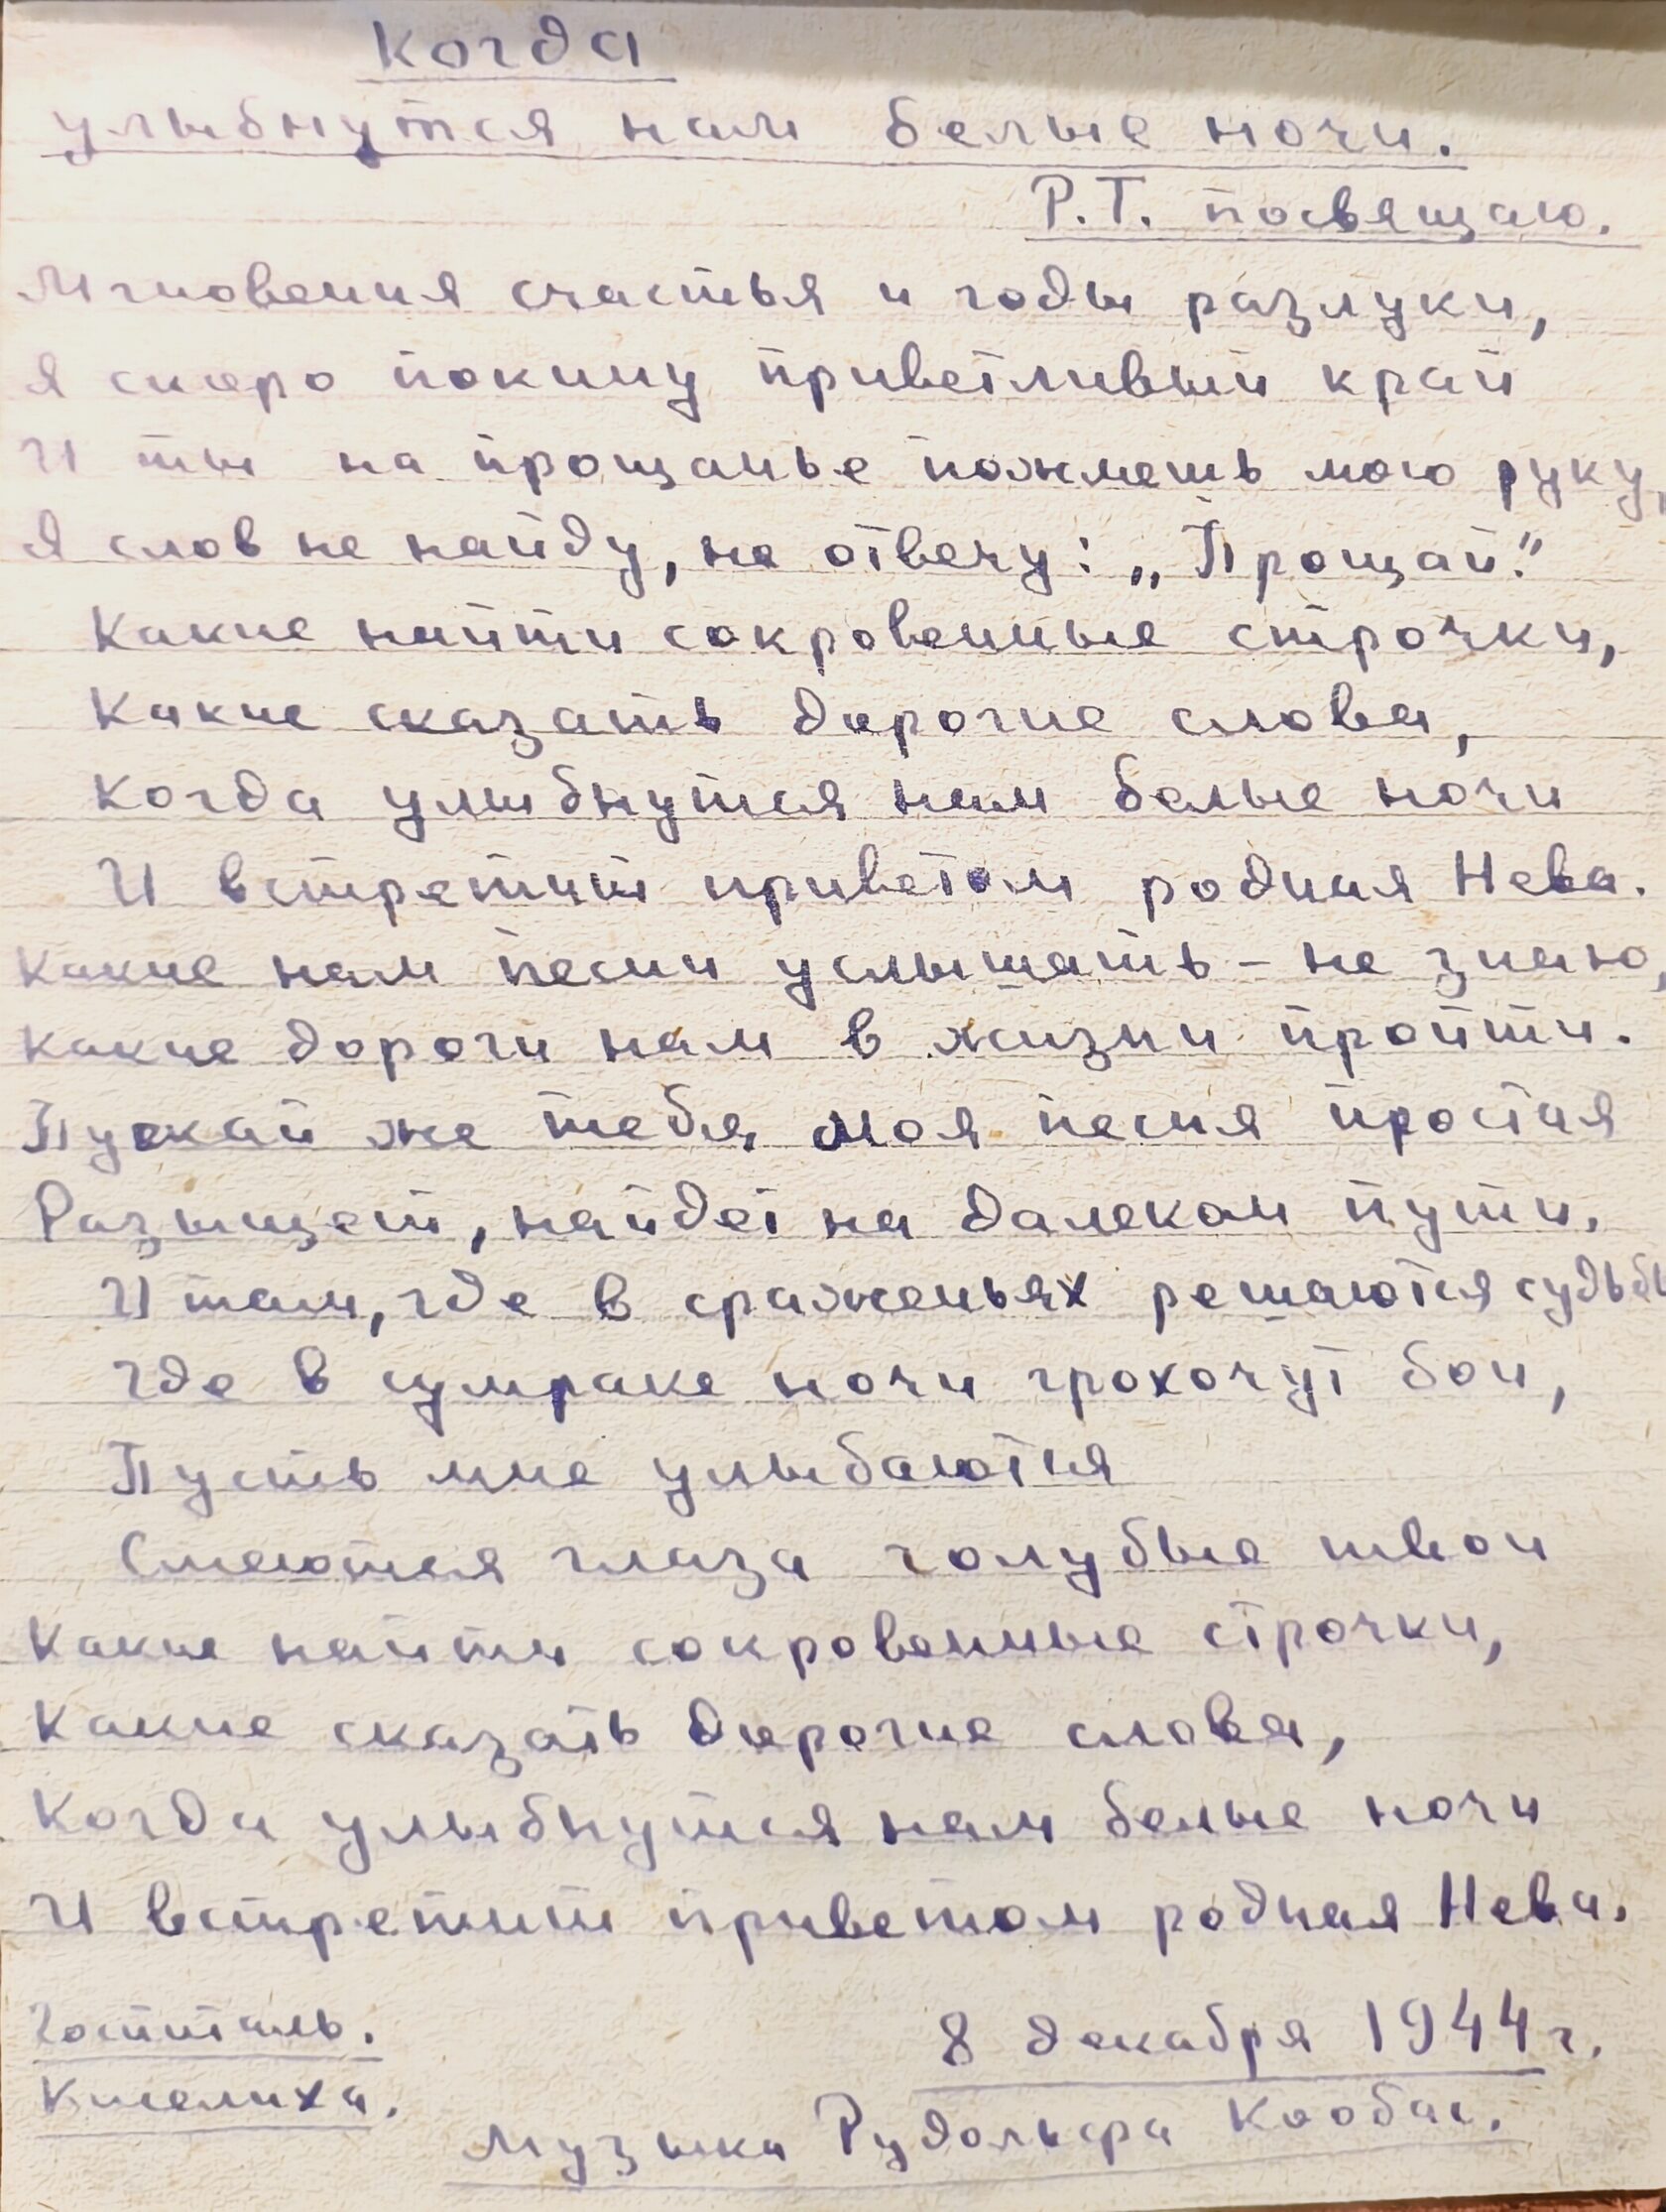 Когда
улыбнутся нам белые ночи.
Р.Т. посвящаю.
Мгновения счастья и годы разлуки,
Я скоро покину приветливый край
И ты на прощанье пожмешь мою руку,
Я слов не найду, не отвечу: „Прощай."
Какие найти сокровенные строчки,
Какие сказать дорогие слова,
Когда улыбнутся нам белые ночи
И встретит приветом родная Нева.
Какие нам песни услышать - не знаю,
Какие дороги нам в жизни пройти.
Пускай же тебя моя песня простая
Разыщет, найдет на далеком пути.
И там, где в сраженьях решаются судьбы
Где в сумраке ночи грохочут бои,
Пусть мне улыбаются
Смеются глаза голубые твои
Какие найти сокровенные строчки,
Какие сказать дорогие слова,
Когда улыбнутся нам белые ночи
И встретит приветом родная Нева.
Госпиталь.
8 декабря 1944 г.
Киселиха.
Музыка Рудольфа Кообас.